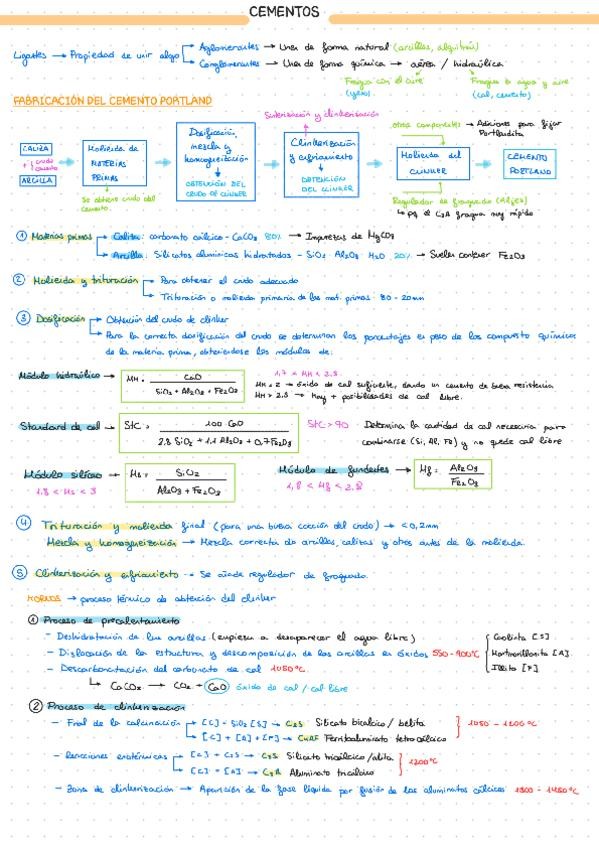 CEMENTOS
Ligantes → Propiedad de unir algo → Aglomerantes → Unen de forma natural (arcillas, alquitrán)
→ Conglomerantes → Unen de forma química → aérea / hidráulica
Fragua con el aire Fragua b agua y aire
(yeso) (cal, cemento)
FABRICACIÓN DEL CEMENTO PORTLAND
Sinterización y clinkerización
otros componentes → Adiciones para fijar Portlandita
CALIZA
+ } crudo cemento
ARCILLA
Molienda de MATERIAS PRIMAS
Se obtiene crudo del cemento
Dosificación, mezcla y homogeneización
OBTENCIÓN DEL CRUDO DE CLINKER
Clinkerización y enfriamiento
OBTENCIÓN DEL CLINKER
Molienda del CLINKER
CEMENTO PORTLAND
Regulador de fraguado (Aljez)
↳ pq el C3A fragua muy rápido
① Materias primas → Caliza: carbonato cálcico - CaCO3 80% → Impurezas de MgCO3
→ Arcilla: Silicatos alumínicos hidratados - SiO2 Al2O3 H2O 20% → Suelen contener Fe2O3
② Molienda y trituración → Para obtener el crudo adecuado
→ Trituración o molienda primaria de las mat. primas 80 - 20mm
③ Dosificación → Obtención del crudo de clinker
→ Para la correcta dosificación del crudo se determinan los porcentajes en peso de los compuestos químicos
de la materia prima, obteniéndose los módulos de:
Módulo hidráulico → MH = CaO / SiO2 + Al2O3 + Fe2O3
1,7 < MH < 2,3
MH = 2 → óxido de cal suficiente, dando un cemento de buena resistencia
MH > 2,3 → Hay + posibilidades de cal libre.
Standard de cal → StC = 100 CaO / 2,8 SiO2 + 1,1 Al2O3 + 0,7 Fe2O3
StC > 90 Determina la cantidad de cal necesaria para
combinarse (Si, Al, Fe) y no quede cal libre
Módulo silíceo → Ms = SiO2 / Al2O3 + Fe2O3
1,8 < Ms < 3
Módulo de fundentes → Mf = Al2O3 / Fe2O3
1,8 < Mf < 2,8
④ Trituración y molienda final (para una buena cocción del crudo) → < 0,2mm
Mezcla y homogeneización → Mezcla correcta de arcillas, calizas y otros antes de la molienda.
⑤ Clinkerización y enfriamiento → Se añade regulador de fraguado.
HORNOS → proceso térmico de obtención del clinker
① Proceso de precalentamiento
- Deshidratación de las arcillas (empieza a desaparecer el agua libre)
- Dislocación de la estructura y descomposición de las arcillas en óxidos 550 - 900°C
- Descarbonatación del carbonato de cal 1050°C
Caolinita [S]
Montmorillonita [A]
Illita [F]
↳ CaCO3 → CO2 + CaO óxido de cal / cal libre
② Proceso de clinkerización
- Final de la calcinación → [C] + SiO2 [S] → C2S Silicato bicálcico / belita
→ [C] + [A] + [F] → C4AF Ferritoaluminato tetracálcico
} 1050 - 1200 °C
- Reacciones exotérmicas → [C] + C2S → C3S Silicato tricálcico / alita
→ [C] + [A] → C3A Aluminato tricálcico
} 1200°C
- Zona de clinkerización → Aparición de la fase líquida por fusión de los aluminatos cálcicos 1300 - 1450 °C